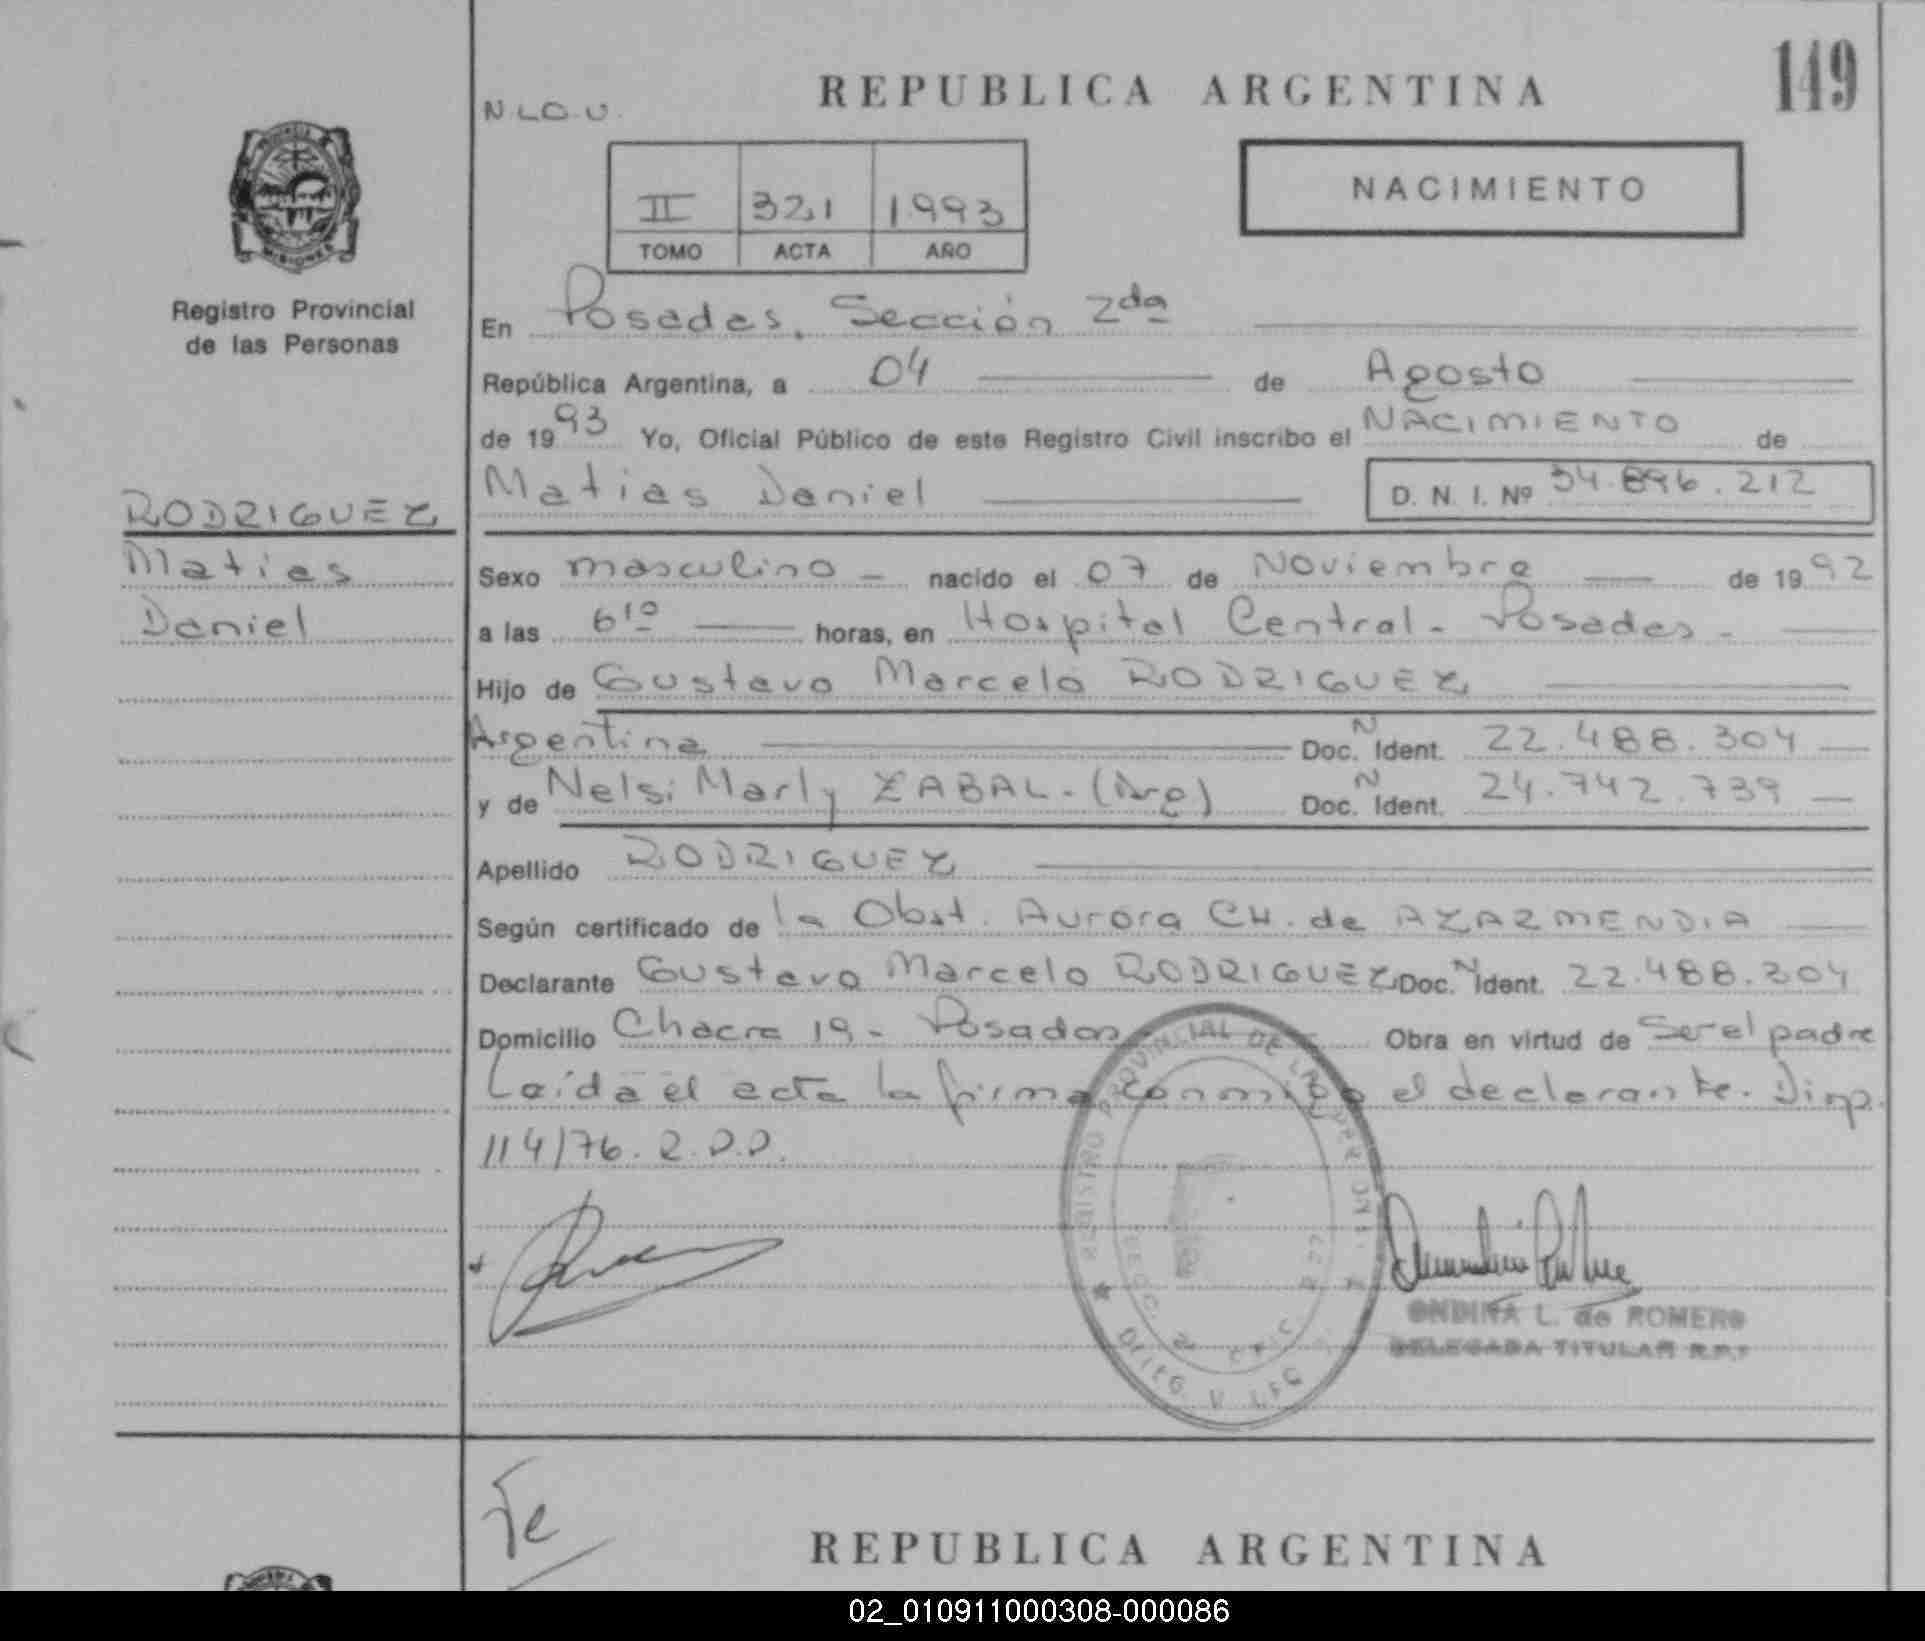 149
REPUBLICA ARGENTINA
N.L.O.U.
NACIMIENTO
II 321 1993
TOMO ACTA AÑO
MISIONES
Registro Provincial
de las Personas
En Posadas, Sección 2da
República Argentina, a 04 de Agosto
de 1993 Yo, Oficial Público de este Registro Civil inscribo el NACIMIENTO de
Matias Daniel D. N. I. Nº 34.896.212
RODRIGUEZ
Matias
Daniel
Sexo masculino - nacido el 07 de Noviembre de 1992
a las 6 10 horas, en Hospital Central - Posadas -
Hijo de Gustavo Marcelo RODRIGUEZ
Argentina Doc. N Ident. 22.488.304
y de Nelsi Marly ZABAL - (Arg) Doc. N Ident. 24.742.739
Apellido RODRIGUEZ
Según certificado de la Obst. Aurora CH. de AZARMENDIA
Declarante Gustavo Marcelo RODRIGUEZ Doc. N Ident. 22.488.304
Domicilio Chacra 19 - Posadas Obra en virtud de Ser el padre
Leída el acta la firma conmigo el declarante. Disp.
114/76. R.P.P.
REGISTRO PROVINCIAL DE LAS PERSONAS
ONDINA L. de ROMERO
DELEGADA TITULAR R.P.P
REPUBLICA ARGENTINA
02_010911000308-000086